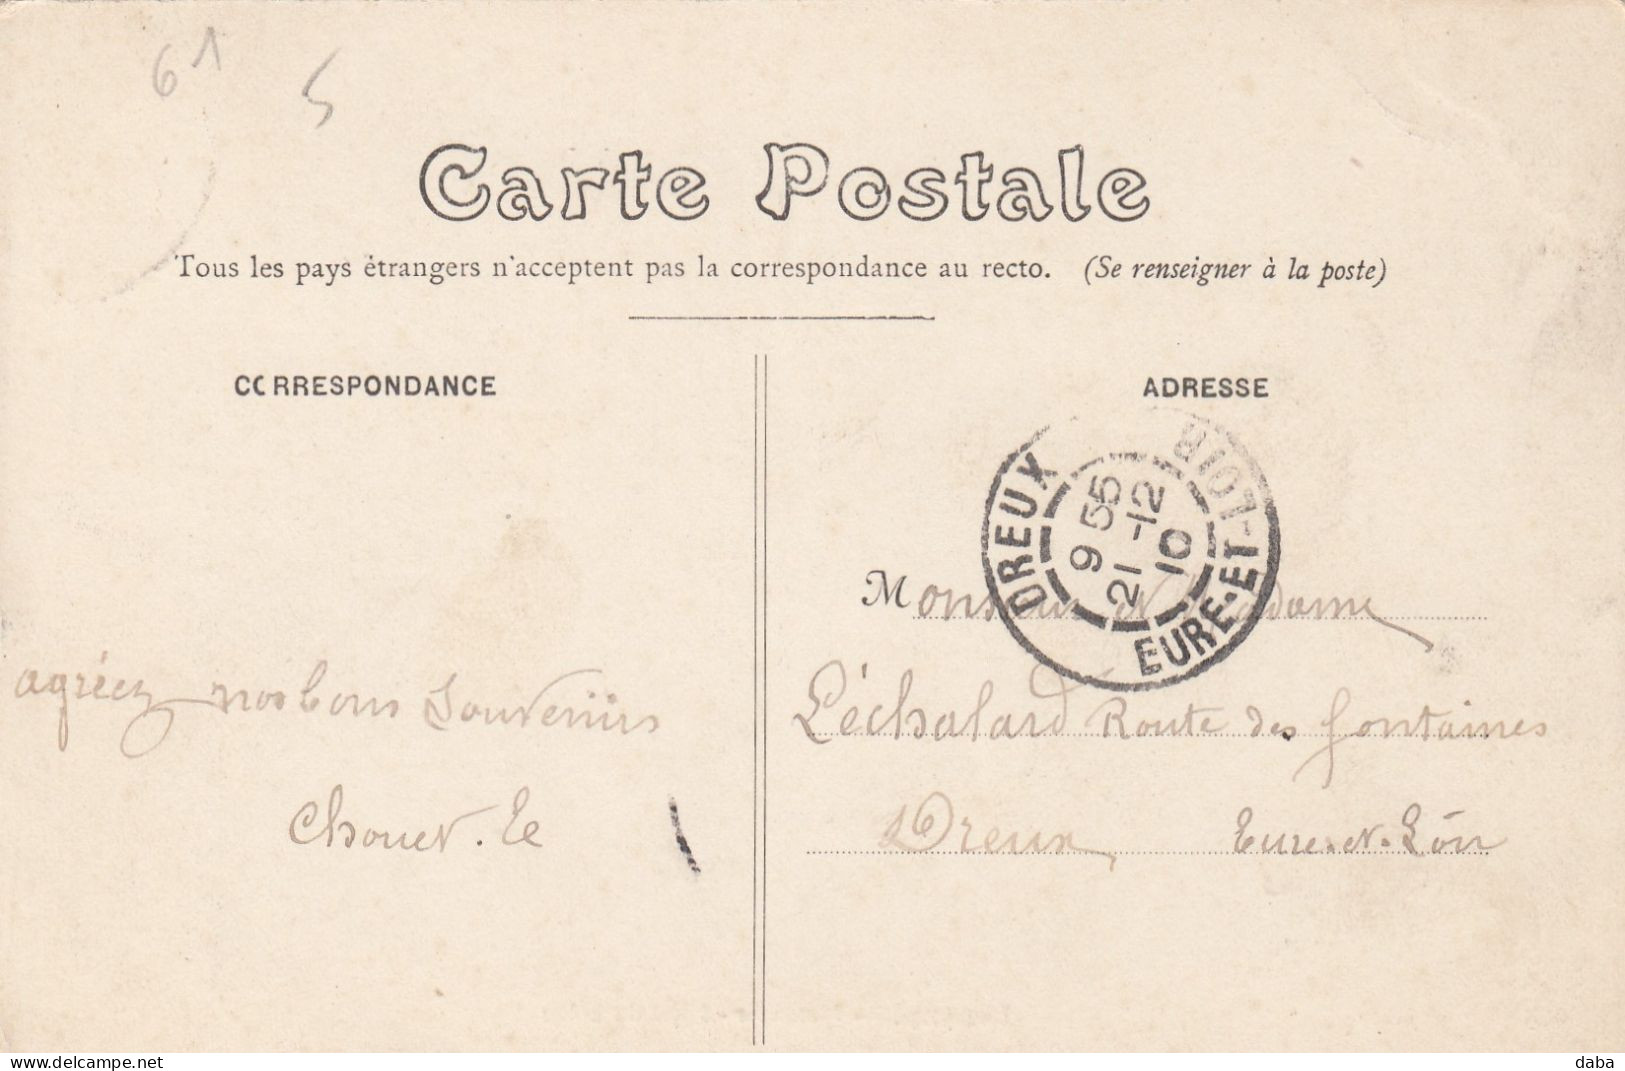 61
5
Carte Postale
Tous les pays étrangers n'acceptent pas la correspondance au recto. (Se renseigner à la poste)
CORRESPONDANCE
ADRESSE
DREUX
9 55
21 -12
10
EURE-ET-LOIR
Monsieur et Madame
Léchalard Route des fontaines
Dreux Eure-et-Loir
agréez nos bons Souvenirs
https://www.delcampe.net
daba